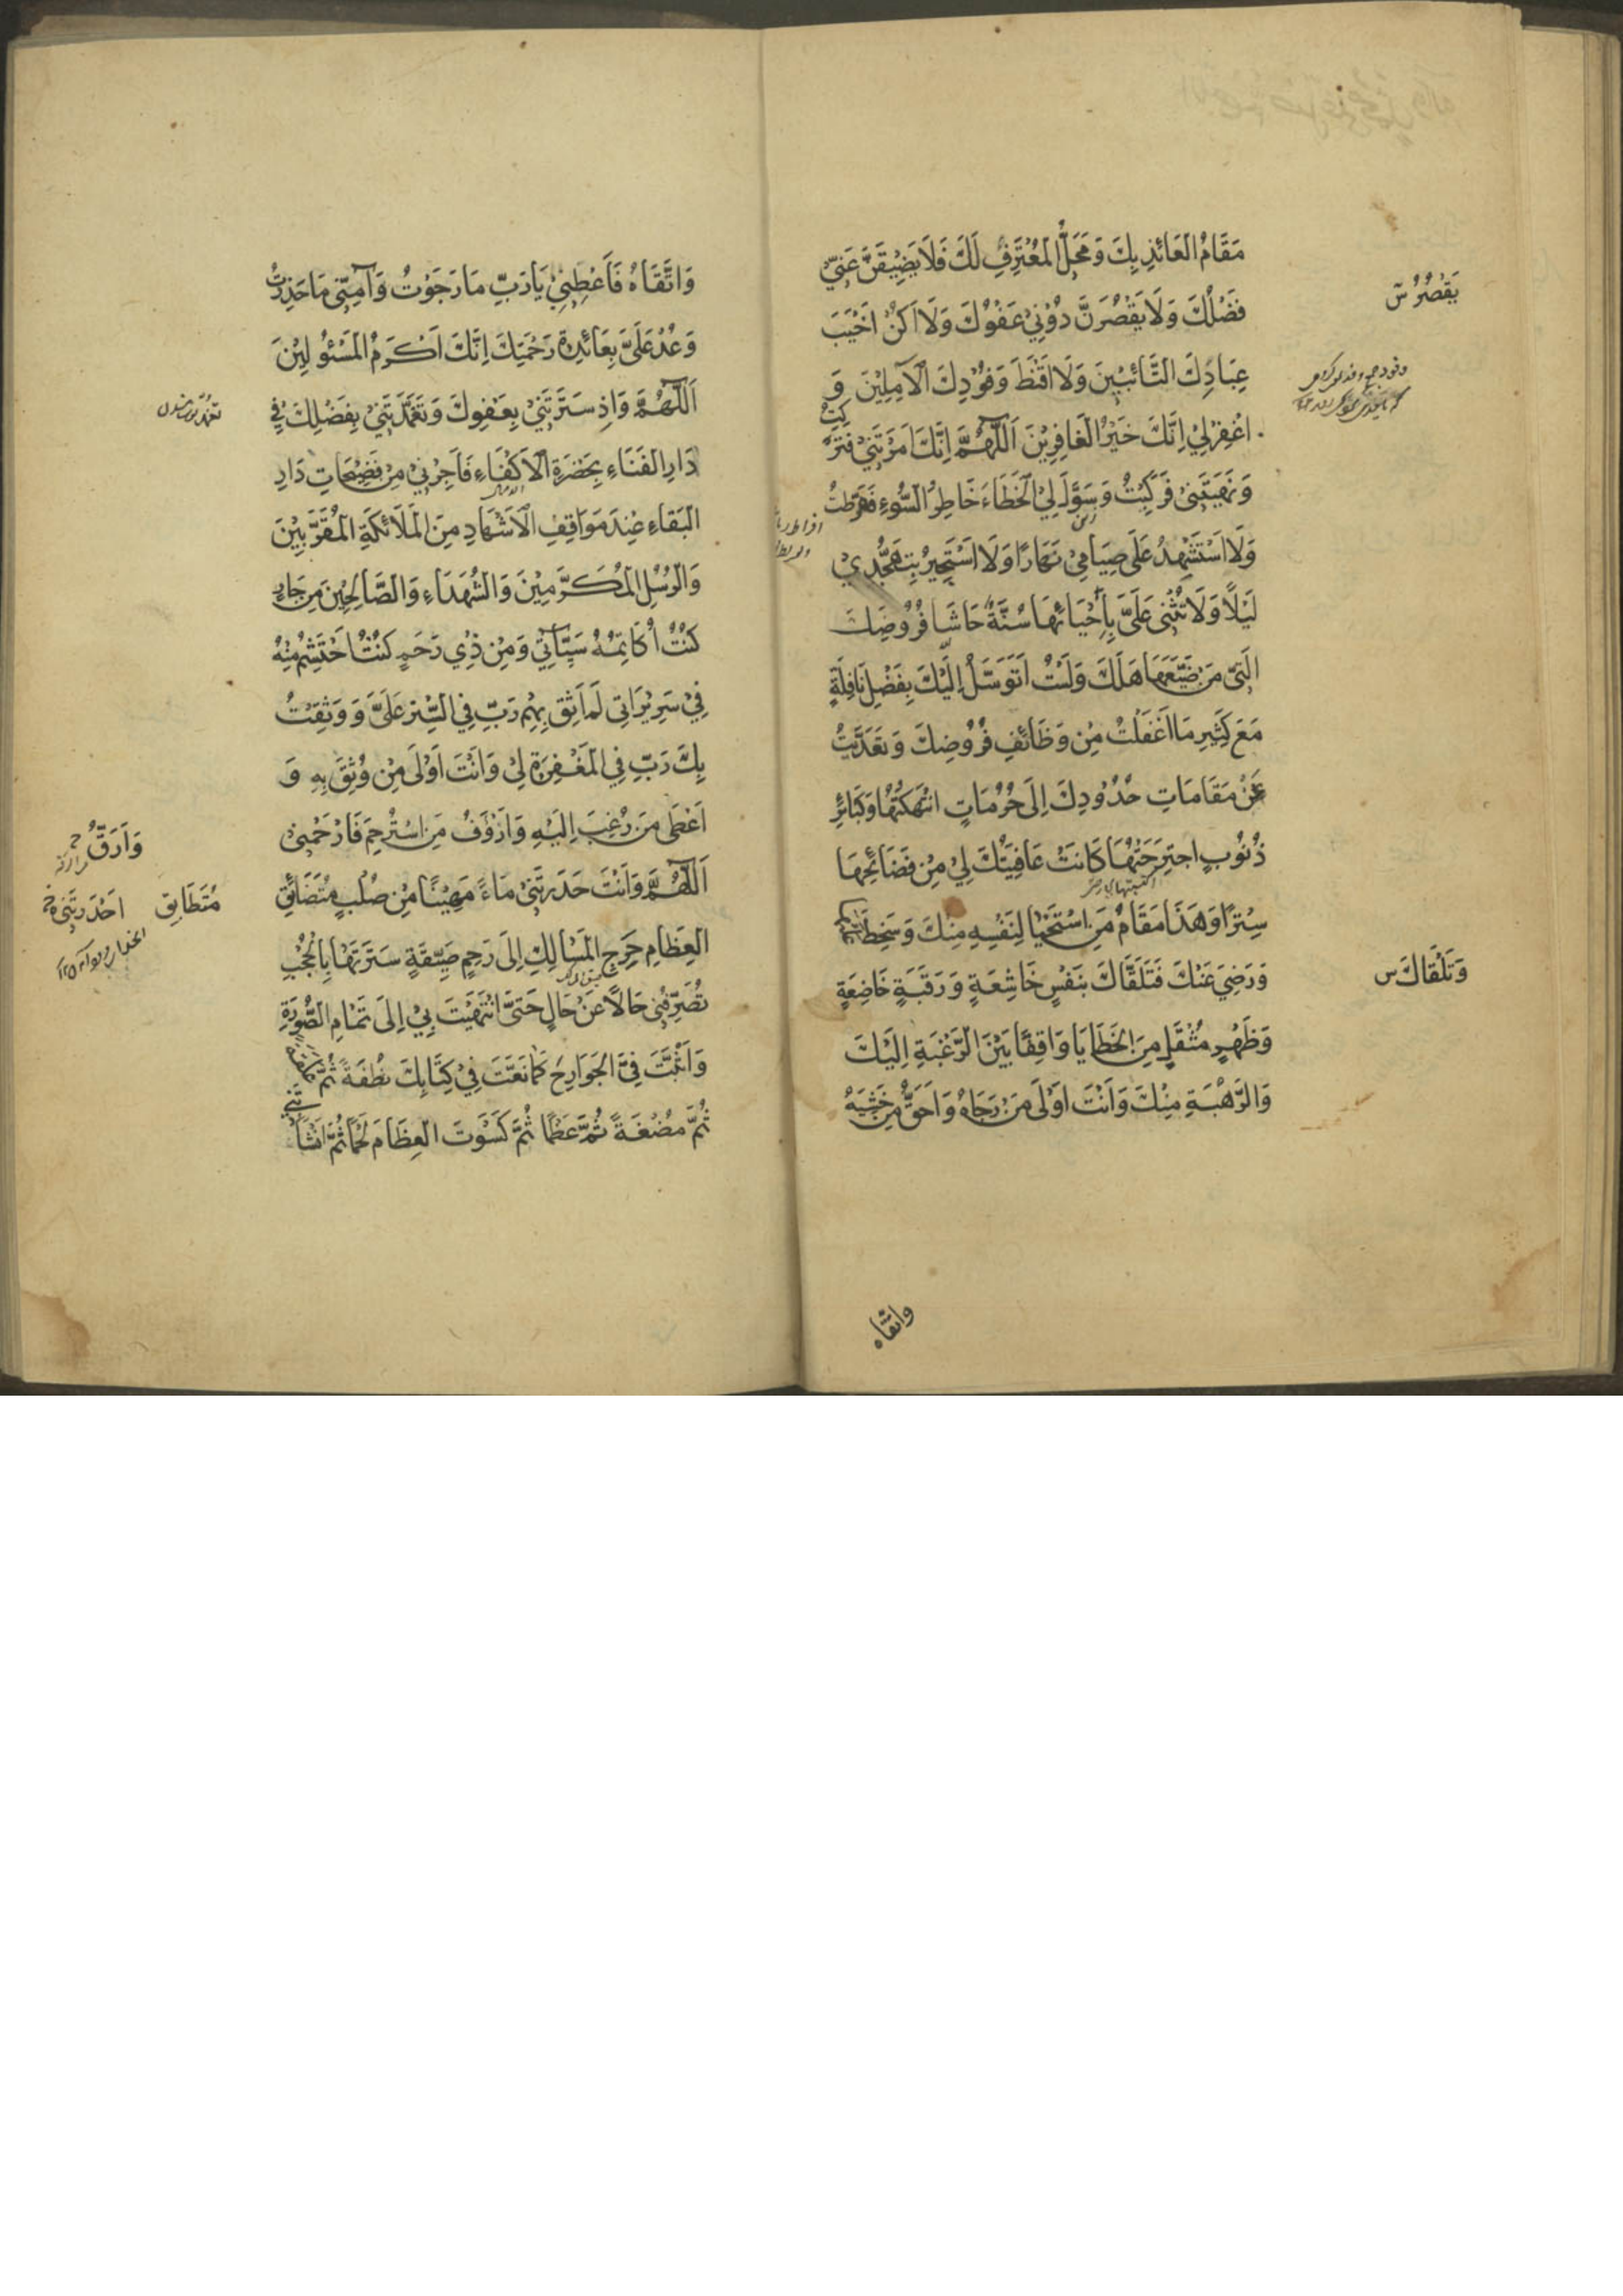 مَقَامُ الْعَائِذِ بِكَ وَمَحَلُّ الْمُعْتَرِفِ لَكَ فَلَا يَضِيقَنَّ عَنِّي
فَضْلُكَ وَلَا يَقْصُرَنَّ دُونِي عَفْوُكَ وَلَا اَكُنْ اَخْيَبَ
عِبَادِكَ التَّائِبِينَ وَلَا اَقْنَطَ وُفُودِكَ الْآمِلِينَ وَ
اغْفِرْ لِي اِنَّكَ خَيْرُ الْغَافِرِينَ اَللّٰهُمَّ اِنَّكَ اَمَرْتَنِي فَتَرَكْتُ
وَنَهَيْتَنِي فَرَكِبْتُ وَسَوَّلَ لِيَ الْخَطَاءَ خَاطِرُ السُّوءِ فَفَرَّطْتُ
وَلَا اَسْتَشْهِدُ عَلَى صِيَامِي نَهَارًا وَلَا اَسْتَجِيرُ بِتَهَجُّدِي
لَيْلًا وَلَا تُثْنِي عَلَيَّ بِاِحْيَائِهَا سُنَّةٌ حَاشَا فُرُوضِكَ
الَّتِي مَنْ ضَيَّعَهَا هَلَكَ وَلَسْتُ اَتَوَسَّلُ اِلَيْكَ بِفَضْلِ نَافِلَةٍ
مَعَ كَثِيرِ مَا اَغْفَلْتُ مِنْ وَظَائِفِ فُرُوضِكَ وَتَعَدَّيْتُ
عَنْ مَقَامَاتِ حُدُودِكَ اِلَى حُرُمَاتٍ انْتَهَكْتُهَا وَكَبَائِرِ
ذُنُوبٍ اجْتَرَحْتُهَا كَانَتْ عَافِيَتُكَ لِي مِنْ فَضَائِحِهَا
سِتْرًا وَهَذَا مَقَامُ مَنِ اسْتَحْيَا لِنَفْسِهِ مِنْكَ وَسَخِطَ عَلَيْهَا
وَرَضِيَ عَنْكَ فَتَلَقَّاكَ بِنَفْسٍ خَاشِعَةٍ وَرَقَبَةٍ خَاضِعَةٍ
وَظَهْرٍ مُثْقَلٍ مِنَ الْخَطَايَا وَاقِفًا بَيْنَ الرَّغْبَةِ اِلَيْكَ
وَالرَّهْبَةِ مِنْكَ وَاَنْتَ اَوْلَى مَنْ رَجَاهُ وَاَحَقُّ مَنْ خَشِيَهُ
واتقاه
يَقْصُرُ س
وَتَلَقَّاكَ س
وَاتَّقَاهُ فَاَعْطِنِي يَا رَبِّ مَا رَجَوْتُ وَآمِنِّي مَا حَذِرْتُ
وَعُدْ عَلَيَّ بِعَائِدَةِ رَحْمَتِكَ اِنَّكَ اَكْرَمُ الْمَسْئُولِينَ
اَللّٰهُمَّ وَاِذْ سَتَرْتَنِي بِعَفْوِكَ وَتَغَمَّدْتَنِي بِفَضْلِكَ فِي
دَارِ الْفَنَاءِ بِحَضْرَةِ الْاَكْفَاءِ فَاَجِرْنِي مِنْ فَضِيحَاتِ دَارِ
الْبَقَاءِ عِنْدَ مَوَاقِفِ الْاَشْهَادِ مِنَ الْمَلَائِكَةِ الْمُقَرَّبِينَ
وَالرُّسُلِ الْمُكَرَّمِينَ وَالشُّهَدَاءِ وَالصَّالِحِينَ مِنْ جَارٍ
كُنْتُ اُكَاتِمُهُ سَيِّئَاتِي وَمِنْ ذِي رَحِمٍ كُنْتُ اَحْتَشِمُ مِنْهُ
فِي سَرِيرَاتِي لَمْ اَثِقْ بِهِمْ رَبِّ فِي السِّتْرِ عَلَيَّ وَوَثِقْتُ
بِكَ رَبِّ فِي الْمَغْفِرَةِ لِي وَاَنْتَ اَوْلَى مَنْ وُثِقَ بِهِ وَ
اَعْطَى مَنْ رُغِبَ اِلَيْهِ وَاَرْؤَفُ مَنِ اسْتُرْحِمَ فَارْحَمْنِي
اَللّٰهُمَّ وَاَنْتَ حَدَرْتَنِي مَاءً مَهِينًا مِنْ صُلْبٍ مُتَضَائِقِ
الْعِظَامِ حَرِجِ الْمَسَالِكِ اِلَى رَحِمٍ ضَيِّقَةٍ سَتَرْتَهَا بِالْحُجُبِ
تُصَرِّفُنِي حَالًا عَنْ حَالٍ حَتَّى انْتَهَيْتَ بِي اِلَى تَمَامِ الصُّورَةِ
وَاَثْبَتَّ فِيَّ الْجَوَارِحَ كَمَا نَعَتَّ فِي كِتَابِكَ نُطْفَةً ثُمَّ عَلَقَةً
ثُمَّ مُضْغَةً ثُمَّ عَظْمًا ثُمَّ كَسَوْتَ الْعِظَامَ لَحْمًا ثُمَّ اَنْشَأْتَنِي
وَاَرَقُّ
مُتَطَابِق
احْدَرْتَنِي